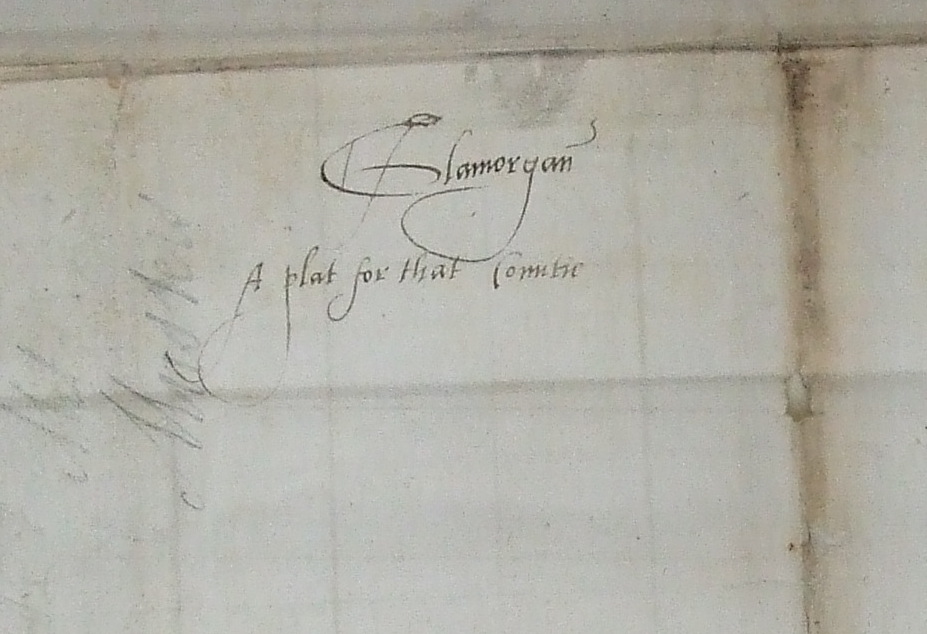 Glamorgan
A plat for that Countie